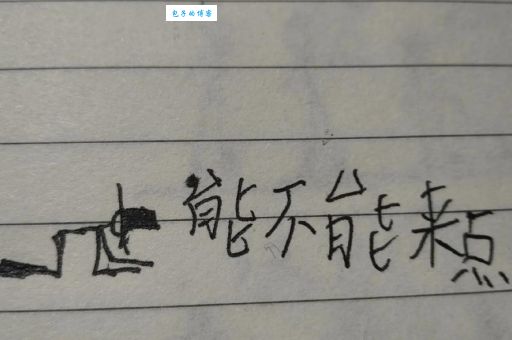 包子的博客
能不能来点